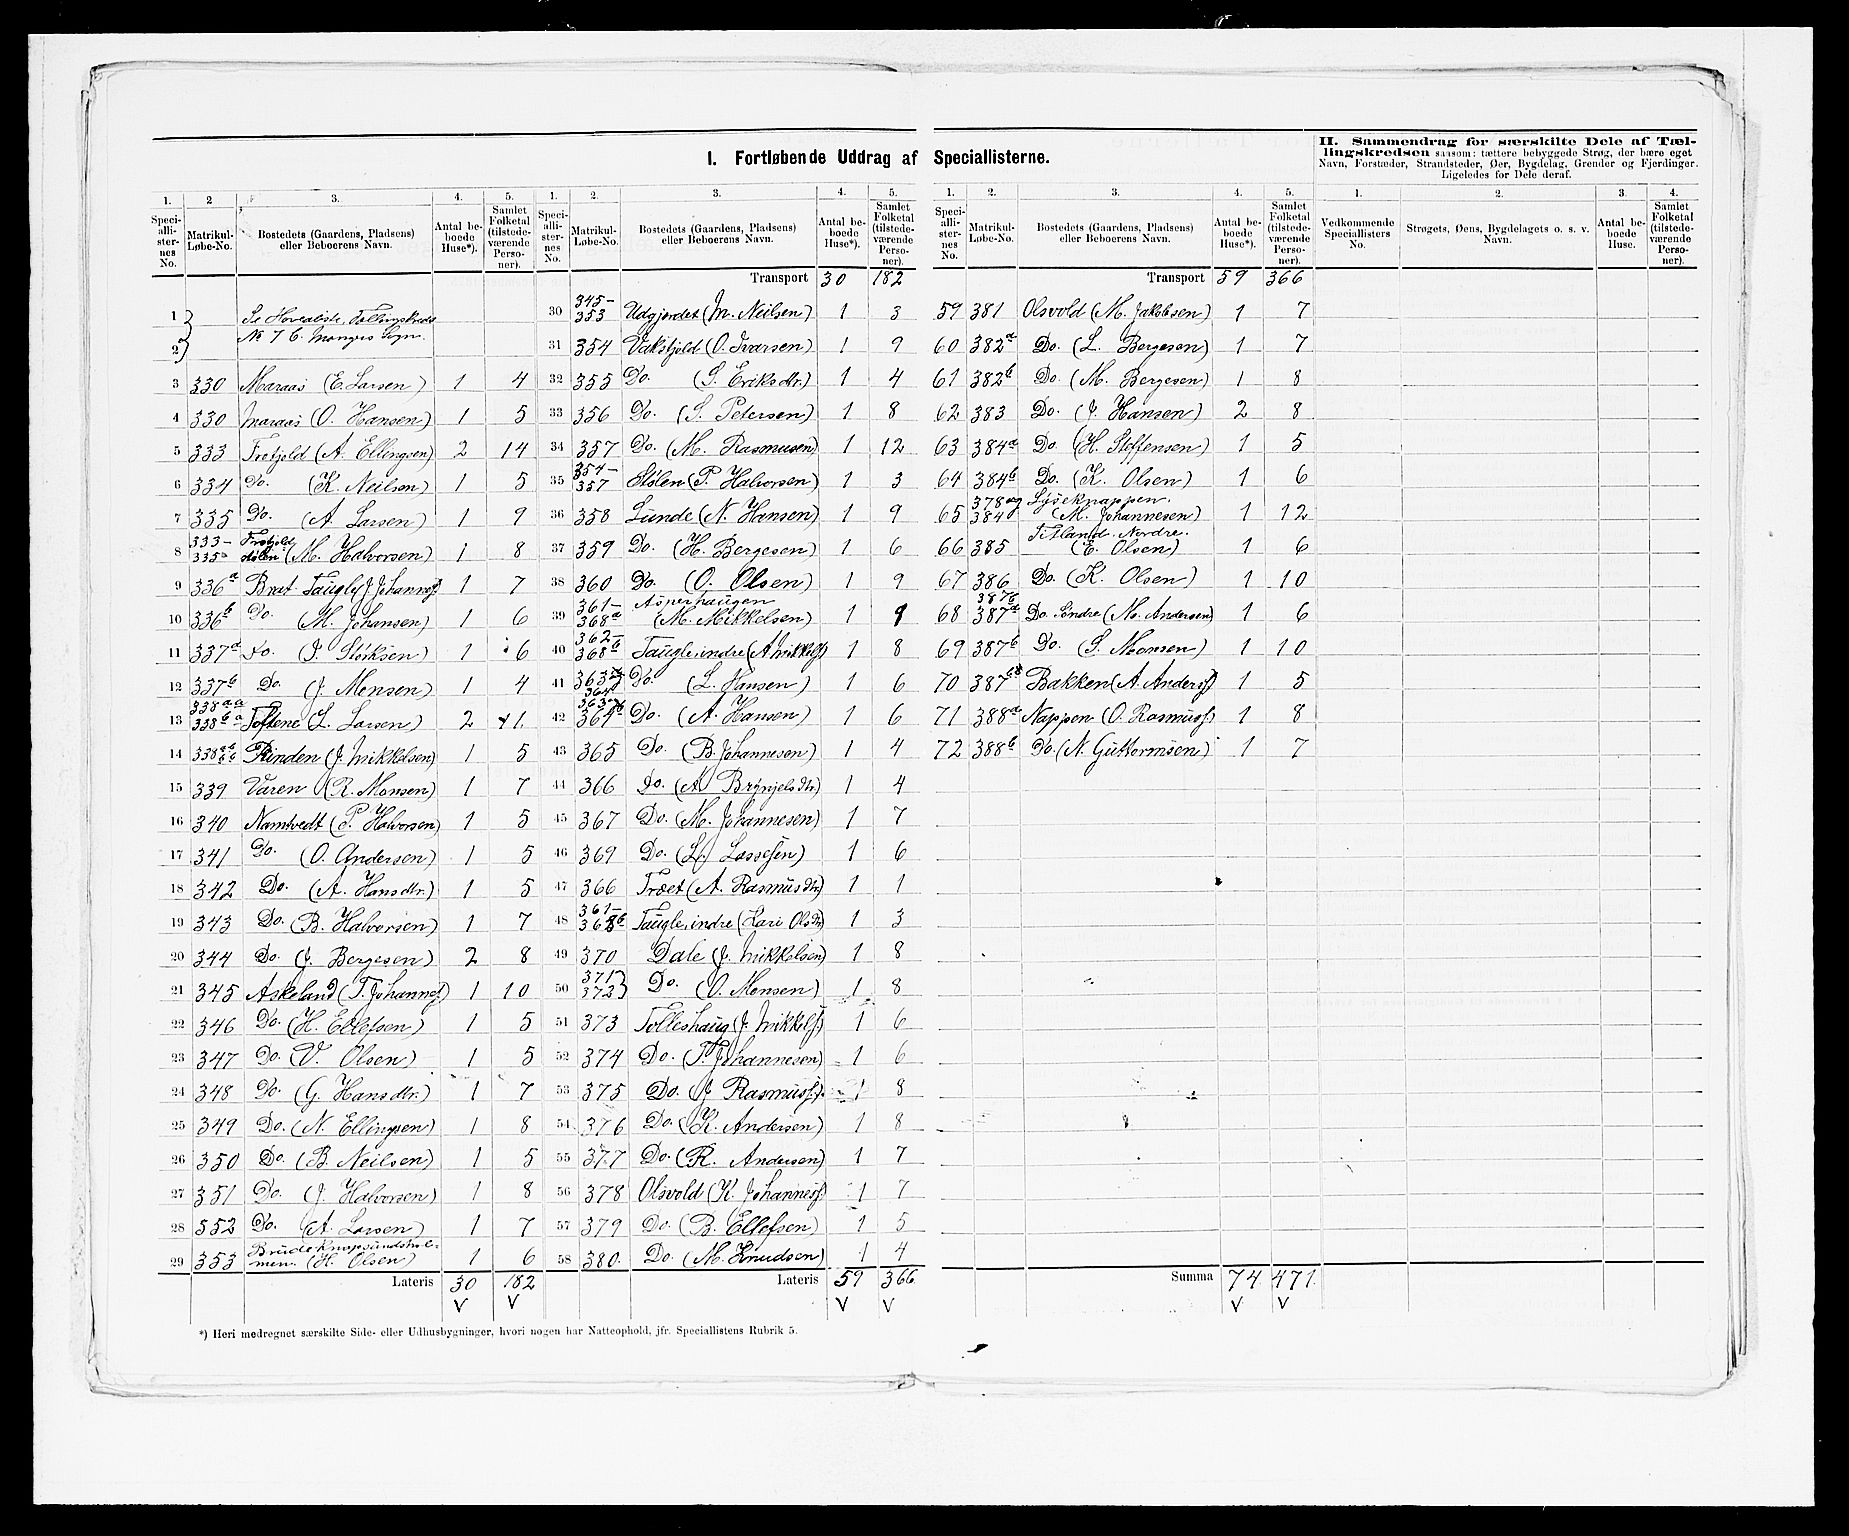 I. Fortløbende Uddrag af Speciallisterne.
II. Sammendrag for særskilte Dele af Tæl-
lingskredsen saasom: tættere bebyggede Strøg, der bære eget
Navn, Forstæder, Strandsteder, Øer, Bygdelag, Grender og Fjerdinger.
Ligeledes for Dele deraf.
1. 2 3. 4. 5.
Speciallisternes No. Matrikul-Løbe-No. Bostedets (Gaardens, Pladsens) eller Beboerens Navn. Antal beboede Huse*). Samlet Folketal (tilstedeværende Personer).
1 Se Hovedliste, Tællingskreds
2 No 7 6. Mangers Sogn.
3 330 Maraas (E. Larsen) 1 4
4 330 Maraas (O. Hansen) 1 5
5 333 Frøtjold (A. Ellingsen) 2 14
6 334 Do. (K. Neilsen) 1 5
7 335 Do. (A. Larsen) 1 9
8 333-335a Frotjold dølen (M. Halvorsen) 1 8
9 336a Bræt Taugle (J. Johannesf) 1 7
10 336b Do. (M. Johansen) 1 6
11 337a Do. (J. Størksen) 1 6
12 337b Do. (J. Mensen) 1 4
13 338aa 338ba Toftene (L. Larsen) 2 11
14 338ab bb Rinden (J. Mikkelsen) 1 5
15 339 Varen (R. Monsen) 1 7
16 340 Namtvedt (P. Halvorsen) 1 5
17 341 Do. (O. Andersen) 1 5
18 342 Do. (A. Hansdtr.) 1 5
19 343 Do. (B. Halvorsen) 1 7
20 344 Do. (J. Bergesen) 2 8
21 345 Askeland (T. Johannesf.) 1 10
22 346 Do. (H. Ellefsen) 1 5
23 347 Do. (V. Olsen) 1 5
24 348 Do. (G. Hansdtr.) 1 7
25 349 Do. (N. Ellingsen) 1 8
26 350 Do. (B. Neilsen) 1 5
27 351 Do. (J. Halvorsen) 1 8
28 352 Do. (A. Larsen) 1 7
29 353 Brude Knapsundsholmen. (H. Olsen) 1 6
Lateris 30 182
V V
1. 2. 3. 4. 5.
Speciallisternes No. Matrikul-Løbe-No. Bostedets (Gaardens, Pladsens) eller Beboerens Navn. Antal beboede Huse*). Samlet Folketal (tilstedeværende Personer).
Transport 30 182
30 345-353 Udgjerdet (M. Neilsen) 1 3
31 354 Vakstjold (O. Ivarsen) 1 9
32 355 Do. (S. Eriksdtr.) 1 4
33 356 Do. (S. Petersen) 1 8
34 357 Do. (M. Rasmusen) 1 12
35 354-357 Stølen (P. Halvorsen) 1 3
36 358 Lunde (N. Hansen) 1 9
37 359 Do. (H. Bergesen) 1 6
38 360 Do. (O. Olsen) 1 9
39 361-368a Asperhaugen (M. Mikkelsen) 1 9
40 362-368b Taugle, indre (A. Mikkelsf) 1 8
41 363 364 Do. (L. Hansen) 1 6
42 363 364 Do. (A. Hansen) 1 6
43 365 Do. (B. Johannesen) 1 4
44 366 Do. (A. Brynjelsdtr) 1 4
45 367 Do. (M. Johannesen) 1 7
46 369 Do. (L. Lassesen) 1 6
47 366 Træet (A. Rasmusdtr) 1 1
48 361-368b Taugle, indre (Kari Olsdtr) 1 3
49 370 Dale (J. Mikkelsen) 1 8
50 371 372 Do. (O. Monsen) 1 8
51 373 Tolleshaug (J. Mikkelsf) 1 6
52 374 Do. (T. Johannesen) 1 6
53 375 Do. (J Rasmusf.) 1 8
54 376 Do. (K. Andersen) 1 8
55 377 Do. (R. Andersen) 1 7
56 378 Olsvold (K. Johannesf) 1 7
57 379 Do. (B. Ellefsen) 1 5
58 380. Do. (M. Knudsen) 1 4
Lateris 59 366
V V
1. 2. 3. 4. 5.
Speciallisternes No. Matrikul-Løbe-No. Bostedets (Gaardens, Pladsens) eller Beboerens Navn. Antal beboede Huse*). Samlet Folketal (tilstedeværende Personer).
Transport 59 366
59 381 Olsvold (M. Jakobsen) 1 7
60 382a Do. (L. Bergesen) 1 7
61 382b Do. (M. Bergesen) 1 8
62 383 Do. (J. Hansen) 2 8
63 384a Do. (H. Steffensen) 1 5
64 384b Do. (K. Olsen) 1 6
65 378 og 384 Lyseknappen. (M. Johannesen) 1 12
66 385 Titland Nordre. (E. Olsen) 1 6
67 386 Do. (K. Olsen) 1 10
68 387a Do. Søndre (M. Andersen) 1 6
69 387b Do. (S. Monsen) 1 10
70 387 Bakken (A. Andersf) 1 5
71 388a Nappen (O. Rasmusf.) 1 8
72 388b Do. (N. Guttormsen) 1 7
Summa 74 471.
V V
1. 2. 3. 4.
Vedkommende Speciallisters No. Strøgets, Øens, Bygdelagets o. s. v. Navn. Antal beboede Huse. Samlet Folketal (tilstedeværende Personer).
*) Heri medregnet særskilte Side- eller Udhusbygninger, hvori nogen har Natteophold, jfr. Speciallistens Rubrik 5.